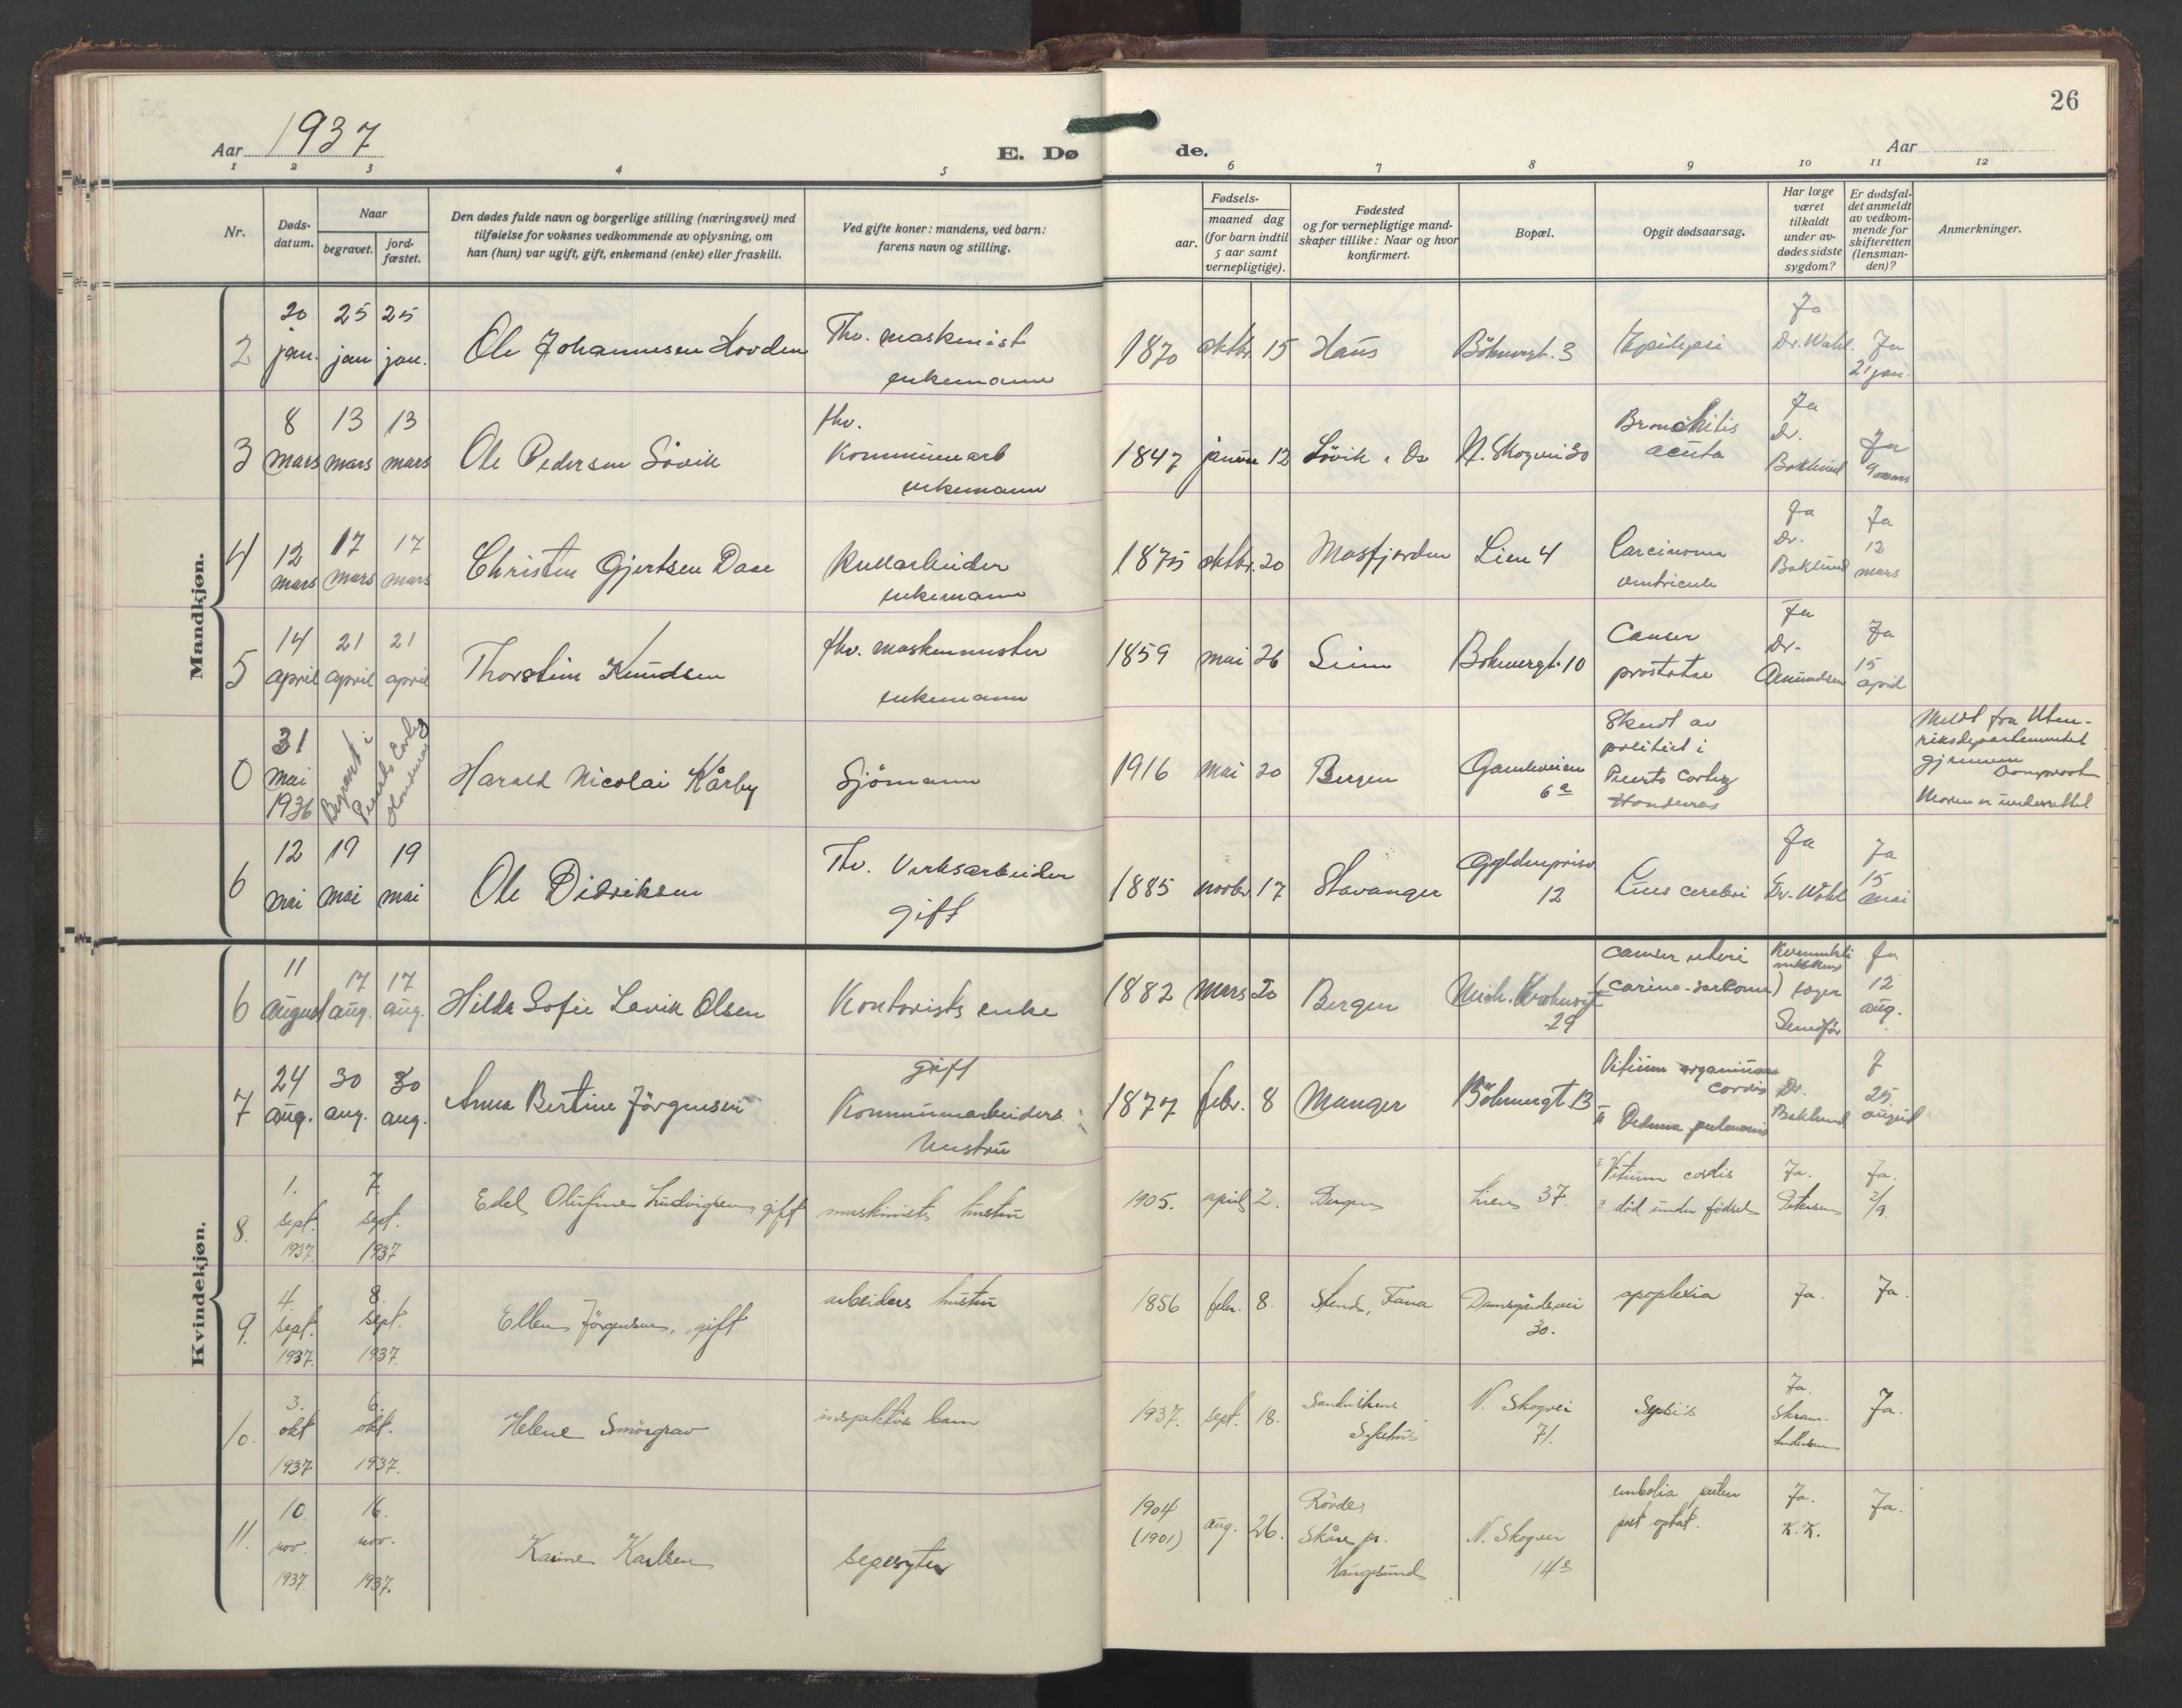 26
Aar 1937
E. Dø
de.
Aar
1 2 3 4 5 6 7 8 9 10 11 12
Nr.
Døds-
datum.
Naar
begravet.
jord-
fæstet.
Den dødes fulde navn og borgerlige stilling (næringsvei) med
tilføielse for voksnes vedkommende av oplysning, om
han (hun) var ugift, gift, enkemand (enke) eller fraskilt.
Ved gifte koner: mandens, ved barn:
farens navn og stilling.
Fødsels-
aar.
maaned dag
(for barn indtil
5 aar samt
vernepligtige).
Fødested
og for vernepligtige mand-
skaper tillike: Naar og hvor
konfirmert.
Bopæl.
Opgit dødsaarsag.
Har læge
været
tilkaldt
under av-
dødes sidste
sygdom?
Er dødsfal-
det anmeldt
av vedkom-
mende for
skifteretten
(lensman-
den)?
Anmerkninger.
Mandkjøn.
2
20 jan.
25 jan
25 jan.
Ole Johannesen Hovden
Thv. maskinist
enkemann
1870 oktbr. 15
Haus
Böhmergt. 3
Epilepsi
Ja
Dr. Wahl.
Ja
21 jan.
3
8 mars
13 mars
13 mars
Ole Pedersen Sövik
thv.
Kommunearb
enkemann
1847 januar 12
Sövik, Os
N. Skogvei 30
Bronchitis
acuta
Ja
Dr.
Baklund
Ja
9 mars
4
12 mars
17 mars
17 mars
Christen Gjertsen Daae
Kullarbeider
enkemann
1875 oktbr. 20
Masfjorden
Lien 4
Carcinoma
ventriculi
Ja
Dr.
Baklund
Ja
12
mars
5
14 april
21 april
21 april
Thorstein Knudsen
thv. maskinmester
enkemann
1859 mai 26
Seim
Böhmergt. 10
Cancer
prostatae
Ja
Dr.
Amundsen
Ja
15
april
0
31
mai
1936
Begravet i
Puerto Cortez
Honduras
Harald Nicolai Kårby
Sjömann
1916 mai 20
Bergen
Gamleveien
6a
Skudt av
politiet i
Puerto Cortez
Honduras
Meldt fra Uten-
riksdepartementet
gjennem
Domprost
Moren er underrettet
6
12 mai
19 mai
19 mai
Ole Didriksen
Thv. Verksarbeider
gift
1885 novbr. 17
Stavanger
Gyldenprisv
12
Lues cerebri
Ja
Dr. Wahl
Ja
15
mai
Kvindekjøn.
6
11 august
17 aug.
17 aug.
Hilda Sofie Lavik Olsen
Kontorists enke
1882 mars 20
Bergen
Mich. Krohnsgt
29
cancer uteri
(carino-sarkoma)
Ja
12
aug.
7
24 aug.
30 aug.
30 aug.
Anna Bertine Jörgensen
gift
Kommunearbeiders
hustru
1877 febr. 8
Manger
Böhmergt 13
Vitium organicum
cordis
Oedema pulmonis
Dr.
Baklund
J
25
august
8.
1.
sept.
1937.
7.
sept.
1937
Edel Olufine Ludvigsen, gift
maskinists hustru
1905. april 2.
Bergen
Lien 37.
Vitium cordis
död under födsel
Ja.
Petersen
Ja.
2/9.
9.
4.
sept.
1937.
8.
sept.
1937.
Ellen Jörgensen, gift
arbeiders hustru
1856 febr. 8.
Stend, Fana
Damsgårdsvei
30.
apoplexia
Ja.
Ja.
10.
3.
okt
1937
6.
okt.
1937.
Helene Smörgrav
inspektörs barn
1937. sept. 18.
Sandvikens
Sykehus
N. Skogvei
71.
Sepsis
Ja.
Skram-
Andersen
Ja.
11.
10.
nov.
1937.
16.
nov.
1937.
Karine Karlsen
sepesyter
1904
(1901)
aug. 26.
Rövde,
Skåre pr.
Haugesund
N. Skogvei
embolia pulm
post optat.
Ja.
K.K.
Ja.